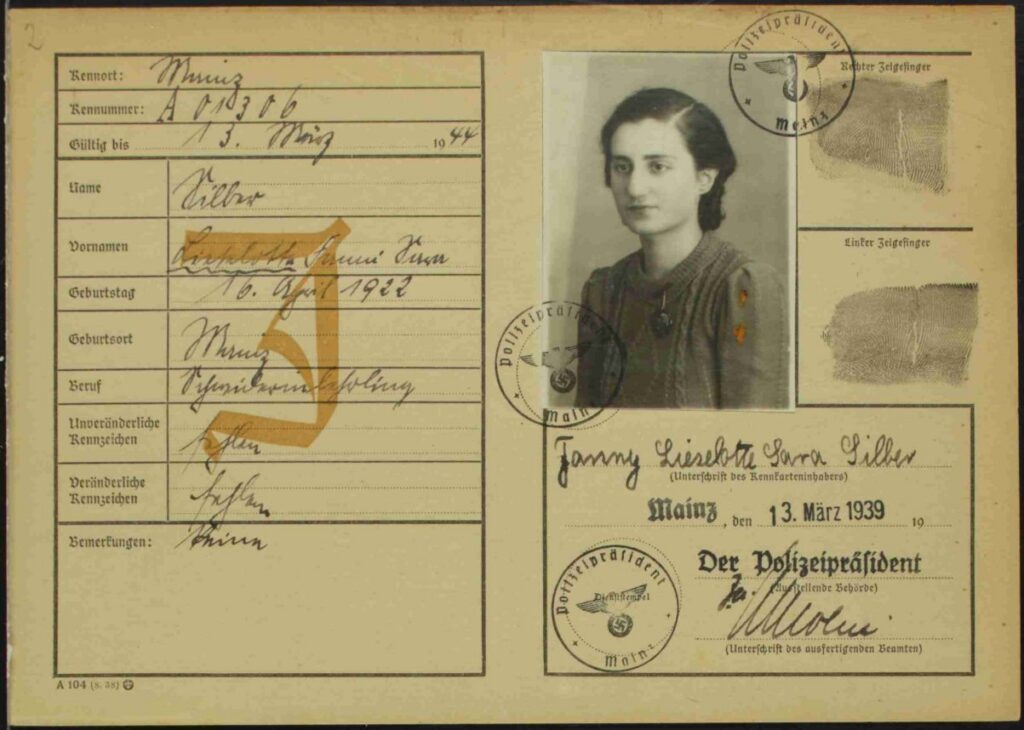 2
Kennort: Mainz
Kennummer: A 01306
Gültig bis 13. März 1944
Name Silber
Vornamen Lieselotte Fanni Sara
Geburtstag 16. April 1922
Geburtsort Mainz
Beruf Schneiderinlehrling
Unveränderliche
Kennzeichen fehlen
Veränderliche
Kennzeichen fehlen
Bemerkungen: Keine
J
A 104 (8. 38)
Polizeipräsident
Mainz
Rechter Zeigefinger
Linker Zeigefinger
Polizeipräsident
Mainz
Fanny Lieselotte Sara Silber
(Unterschrift des Kennkarteninhabers)
Mainz, den 13. März 1939 19
Der Polizeipräsident
(Ausstellende Behörde)
(Unterschrift des ausfertigenden Beamten)
Polizeipräsident
Dienststempel
Mainz